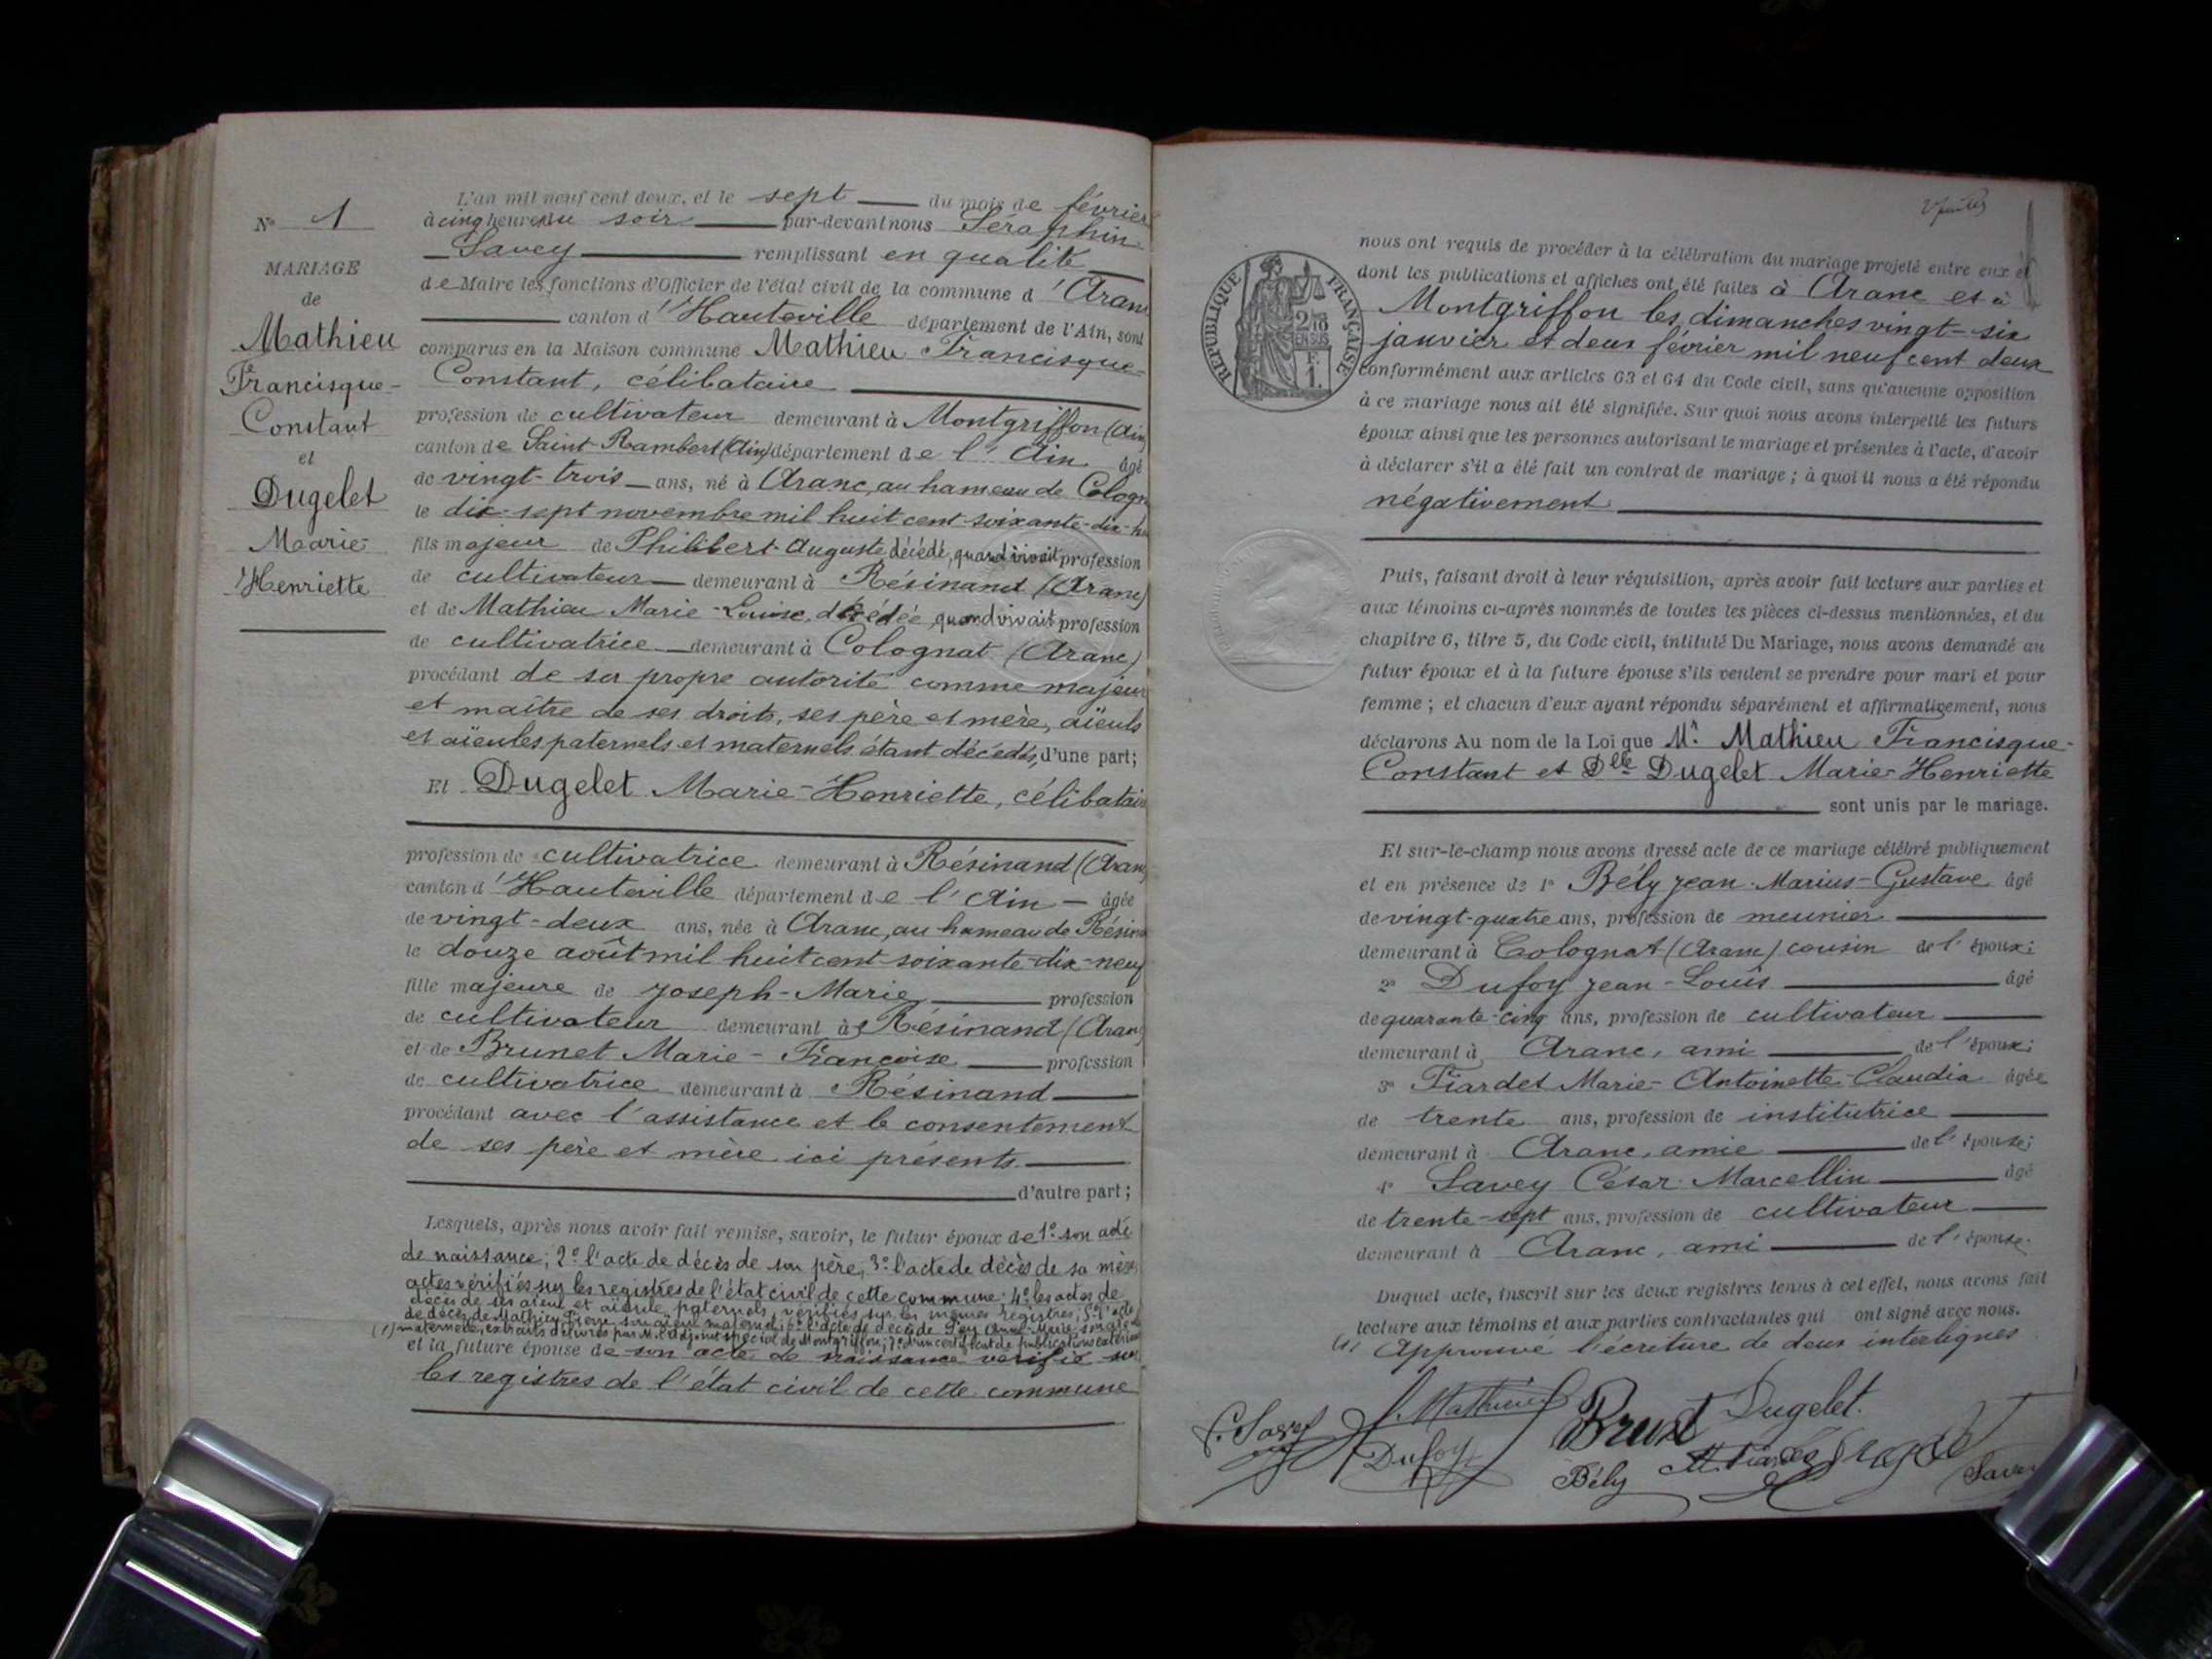 N° 1
MARIAGE
de
Mathieu
Francisque-
Constant
et
Dugelet
Marie-
Henriette
L'an mil neuf cent deux, et le sept du mois de février
à cinq heures du soir par-devant nous Séraphin
Savey remplissant en qualité
de Maire les fonctions d'Officier de l'état civil de la commune d'Aranc
canton d'Hauteville département de l'Ain, sont
comparus en la Maison commune Mathieu Francisque-
Constant, célibataire
profession de cultivateur demeurant à Montgriffon (Ain)
canton de Saint-Rambert (Ain) département de l'Ain âgé
de vingt-trois ans, né à Aranc, au hameau de Cologn
le dix-sept novembre mil huit cent soixante-dix-h
fils majeur de Philibert-Auguste décédé, quand vivait profession
de cultivateur demeurant à Résinand (Aranc)
et de Mathieu Marie-Louise, décédée, quand vivait profession
de cultivatrice demeurant à Colognat (Aranc)
procédant de sa propre autorité comme majeur
et maître de ses droits, ses père et mère, aïeuls
et aïeules paternels et maternels étant décédés, d'une part;
Et Dugelet Marie-Henriette, célibatair
profession de cultivatrice demeurant à Résinand (Aranc
canton d'Hauteville département de l'Ain âgée
de vingt-deux ans, née à Aranc, au hameau de Résin
le douze août mil huit cent soixante-dix-neuf
fille majeure de Joseph-Marie profession
de cultivateur demeurant à Résinand (Aran
et de Brunet Marie-Françoise profession
de cultivatrice demeurant à Résinand
procédant avec l'assistance et le consentement
de ses père et mère ici présents
d'autre part;
Lesquels, après nous avoir fait remise, savoir, le futur époux de 1° son acte
de naissance; 2° l'acte de décès de son père; 3° l'acte de décès de sa mère
actes vérifiés sur les registres de l'état civil de cette commune; 4° les actes de
décès de ses aïeul et aïeule paternels, vérifiés sur les mêmes registres; 5° l'acte
de décès de Mathieu Pierre son aïeul maternel; 6° l'acte de décès de Anne-Marie son aïeule
(1) maternelle, extraits délivrés par M. l'Adjoint spécial de Montgriffon; 7° d'un certificat de publications
et la future épouse de son acte de naissance vérifié sur
les registres de l'état civil de cette commune
RÉPUBLIQUE FRANÇAISE
2/10
EN SUS
F.
1.
nous ont requis de procéder à la célébration du mariage projeté entre eux et
dont les publications et affiches ont été faites à Aranc et à
Montgriffon les dimanches vingt-six
janvier et deux février mil neuf cent deux
conformément aux articles 63 et 64 du Code civil, sans qu'aucune opposition
à ce mariage nous ait été signifiée. Sur quoi nous avons interpellé les futurs
époux ainsi que les personnes autorisant le mariage et présentes à l'acte, d'avoir
à déclarer s'il a été fait un contrat de mariage; à quoi il nous a été répondu
négativement
Puis, faisant droit à leur réquisition, après avoir fait lecture aux parties et
aux témoins ci-après nommés de toutes les pièces ci-dessus mentionnées, et du
chapitre 6, titre 5, du Code civil, intitulé Du Mariage, nous avons demandé au
futur époux et à la future épouse s'ils veulent se prendre pour mari et pour
femme; et chacun d'eux ayant répondu séparément et affirmativement, nous
déclarons Au nom de la Loi que Mr Mathieu Francisque-
Constant et Dlle Dugelet Marie-Henriette
sont unis par le mariage.
Et sur-le-champ nous avons dressé acte de ce mariage célébré publiquement
et en présence de 1° Bély Jean-Marius-Gustave âgé
de vingt-quatre ans, profession de meunier
demeurant à Colognat (Aranc) cousin de l'époux;
2° Dufoy Jean-Louis âgé
de quarante-cinq ans, profession de cultivateur
demeurant à Aranc, ami de l'époux;
3° Tiardet Marie-Antoinette-Claudia âgée
de trente ans, profession de institutrice
demeurant à Aranc, amie de l'épouse;
4° Savey César-Marcellin âgé
de trente-sept ans, profession de cultivateur
demeurant à Aranc, ami de l'épouse.
Duquel acte, inscrit sur les deux registres tenus à cet effet, nous avons fait
lecture aux témoins et aux parties contractantes qui ont signé avec nous.
(1) Approuvé l'écriture de deux interlignes
C. Savey Mathieu Brunet Dugelet.
Dufoy Bély Savey